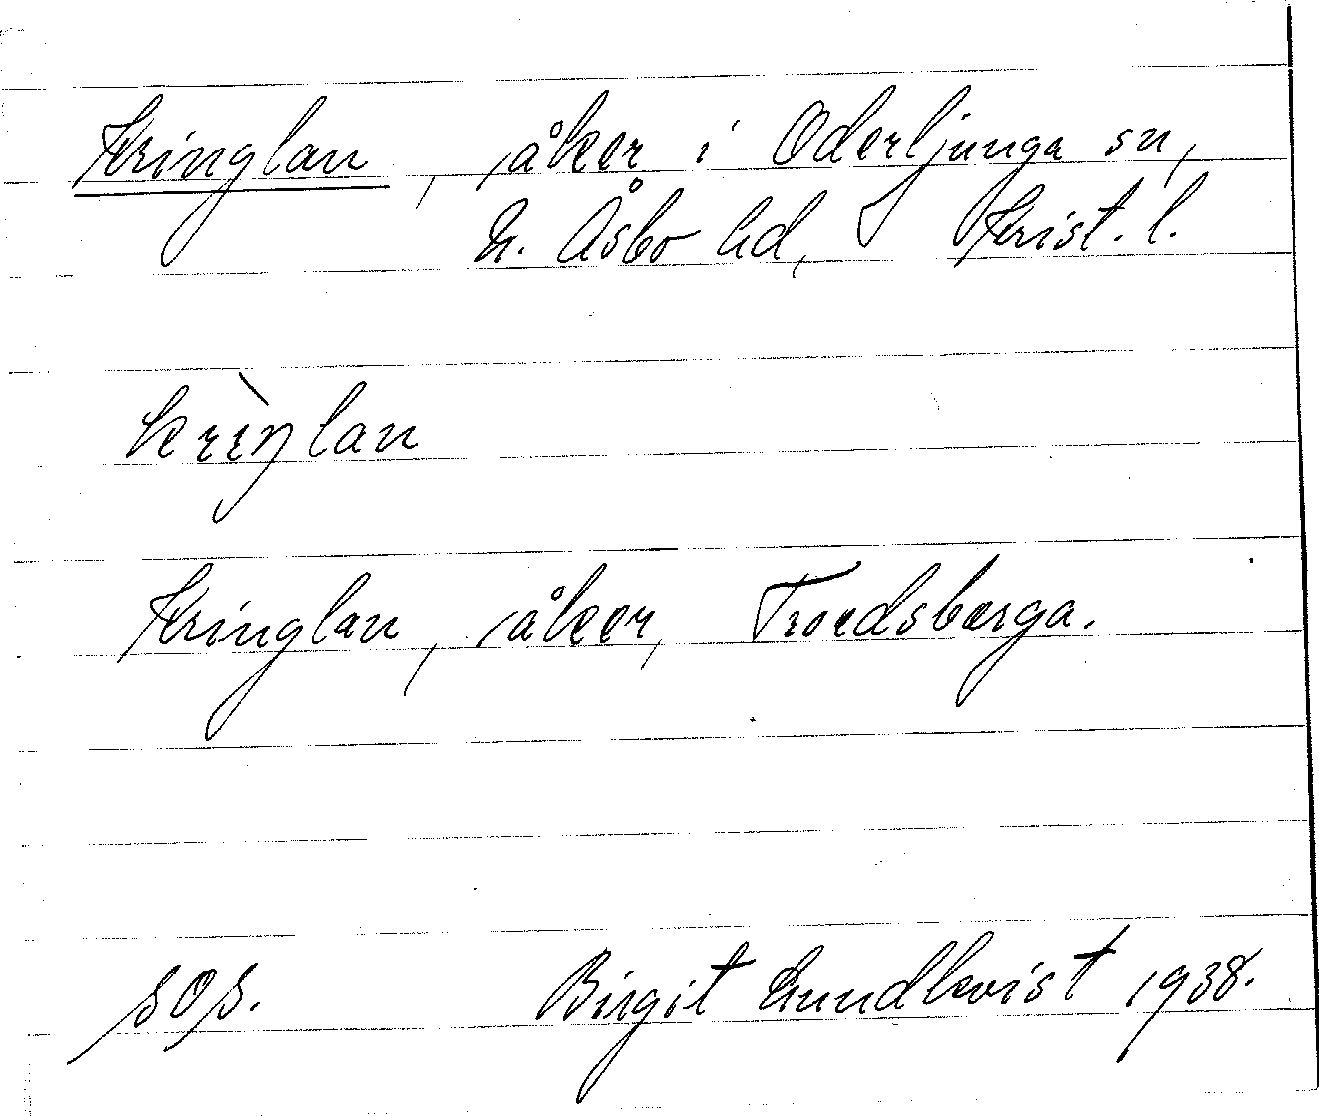 Kringlan, åker i Oderljunga sn,
N. Åsbo hd, Krist. l.
krìŋlan
Kringlan, åker, Troedsberga.
sos. Birgit Lundkvist 1938.